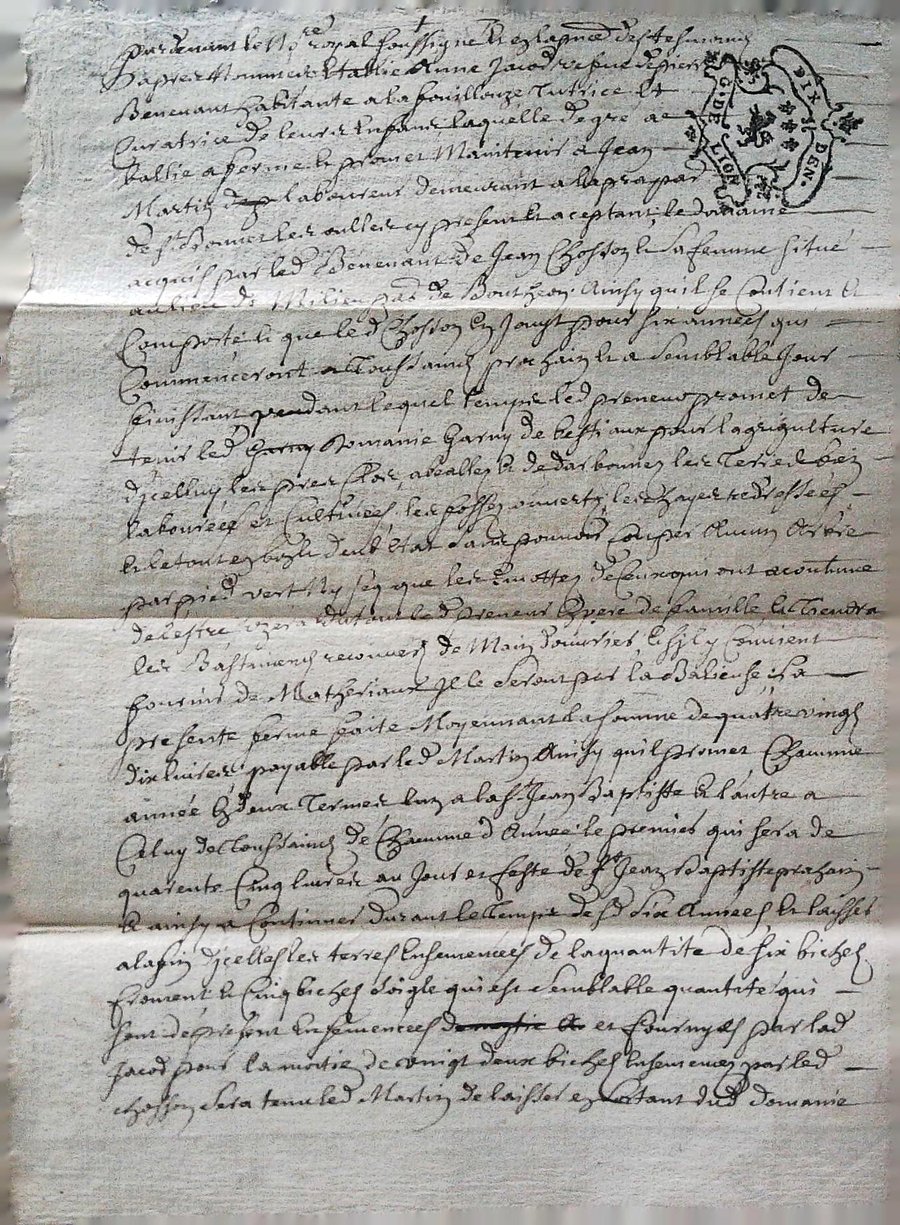 G. DE LION
DIX DEN.
pardevant le No.re royal soussigne et en la presence des tesmoings
apres Nommes establie Anne Jacod vefve de pierre
Benevant habitante a la fouillouze Tutrice et
Curatrice de leurs enfans laquelle de gre a
baillé a ferme et promet Maintenir a Jean
Martin laboureur demeurant a la pra par
de St Bonnet les oulles cy present et aceptant, le domaine
acquis par led Benevant de Jean Chosson et sa femme situé
au lieu de Milieu par de Bouthéon Ainsy quil se Contient et
Comporte et que led Chosson en Jouist pour six années qui
Commenceront a Toussainct prochain et a semblable Jour
finissant pendant lequel temps led preneur promet de
tenir led Domanie Garny de bestiaux pour lagriculture
dicelluy les pres clos et de les Terres bien
labourées et Cultivées, les fossez ouverts, les hayes redressées
et le tout en bon et deub Estat sans pouvoir Couper Aucun Arbre
par pied vert Ny secq que les Emottes de Ceux qui ont acoutume
de lestre led preneur en pere de famille et Tiendra
les Bastiments recouvers de Main douvrier, et sil y Convient
fournir de Matheriaux Ils le seront par la Balieuse, la
presente ferme faite Moyennant la somme de quatre vingt
dix livres payable par led Martin Ainsy quil promet Chaume
année En deux Termes lun a la St Jean Baptiste et lautre a
Celuy de Toussainct de Chaume d Année le premier qui sera de
quarente Cinq livres au Jour et feste de St Jean Baptiste prochain
et ainsy a Continuer durant le Temps desd six Années et laisser
a la fin dicelles les terres Ensemencées de la quantité de six bichets
froment et Cinq bichets soigle qui est semblable quantité qui
sont de present Ensemencées et fournyes par lad
Jacod pour la moitié de vingt deux bichets Ensemences par led
chosson sera tenu led Martin de laisser en sortant dud domanie